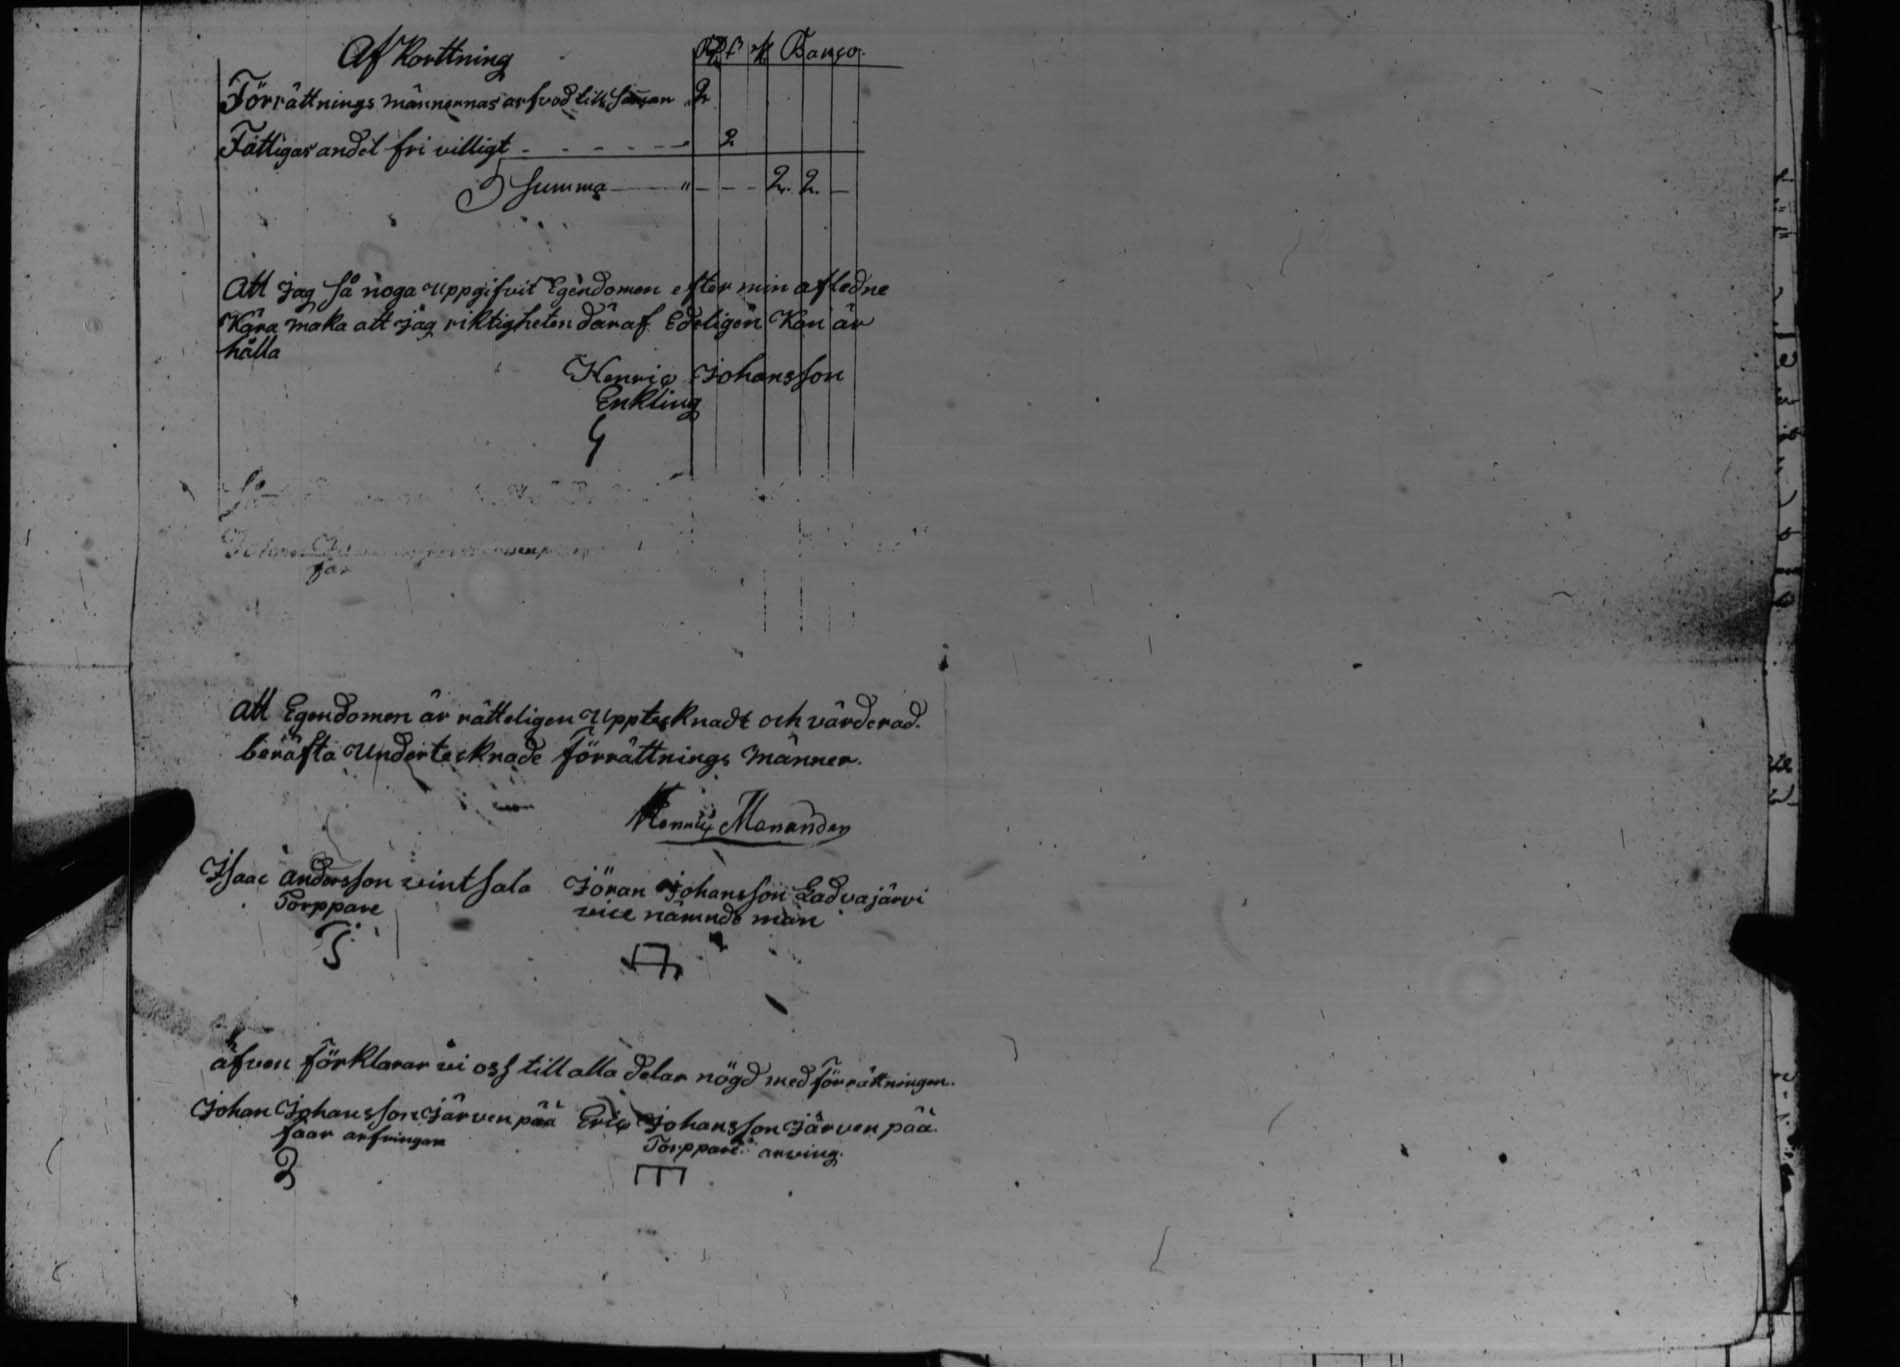 Af Korttning Rd s rs Banco.
Förrättnings männernas arfvod till samman 2
Fattigas andel fri villigt - - - - - - 2
Summa — " - - - 2. 2. —
Att jag så noga uppgifvit Egendomen efter min afledne
Kära maka att jag riktigheten däraf Edeligen Kan är
hålla
Henric Johansson
Enkling
att Egendomen är rätteligen Upptecknadt och värderad.
beräfta Undertecknade förrättnings Männer.
Henric Menander
Isaac andersson vintsala Jöran Johansson Ladvajärvi
Torppare vice nämnds man
äfven förklarar vi oss till alla delar nögd med förrättningen.
Johan Johansson Järvenpää Eric Johansson Järvenpää.
faar arfvingar Torppare arving.